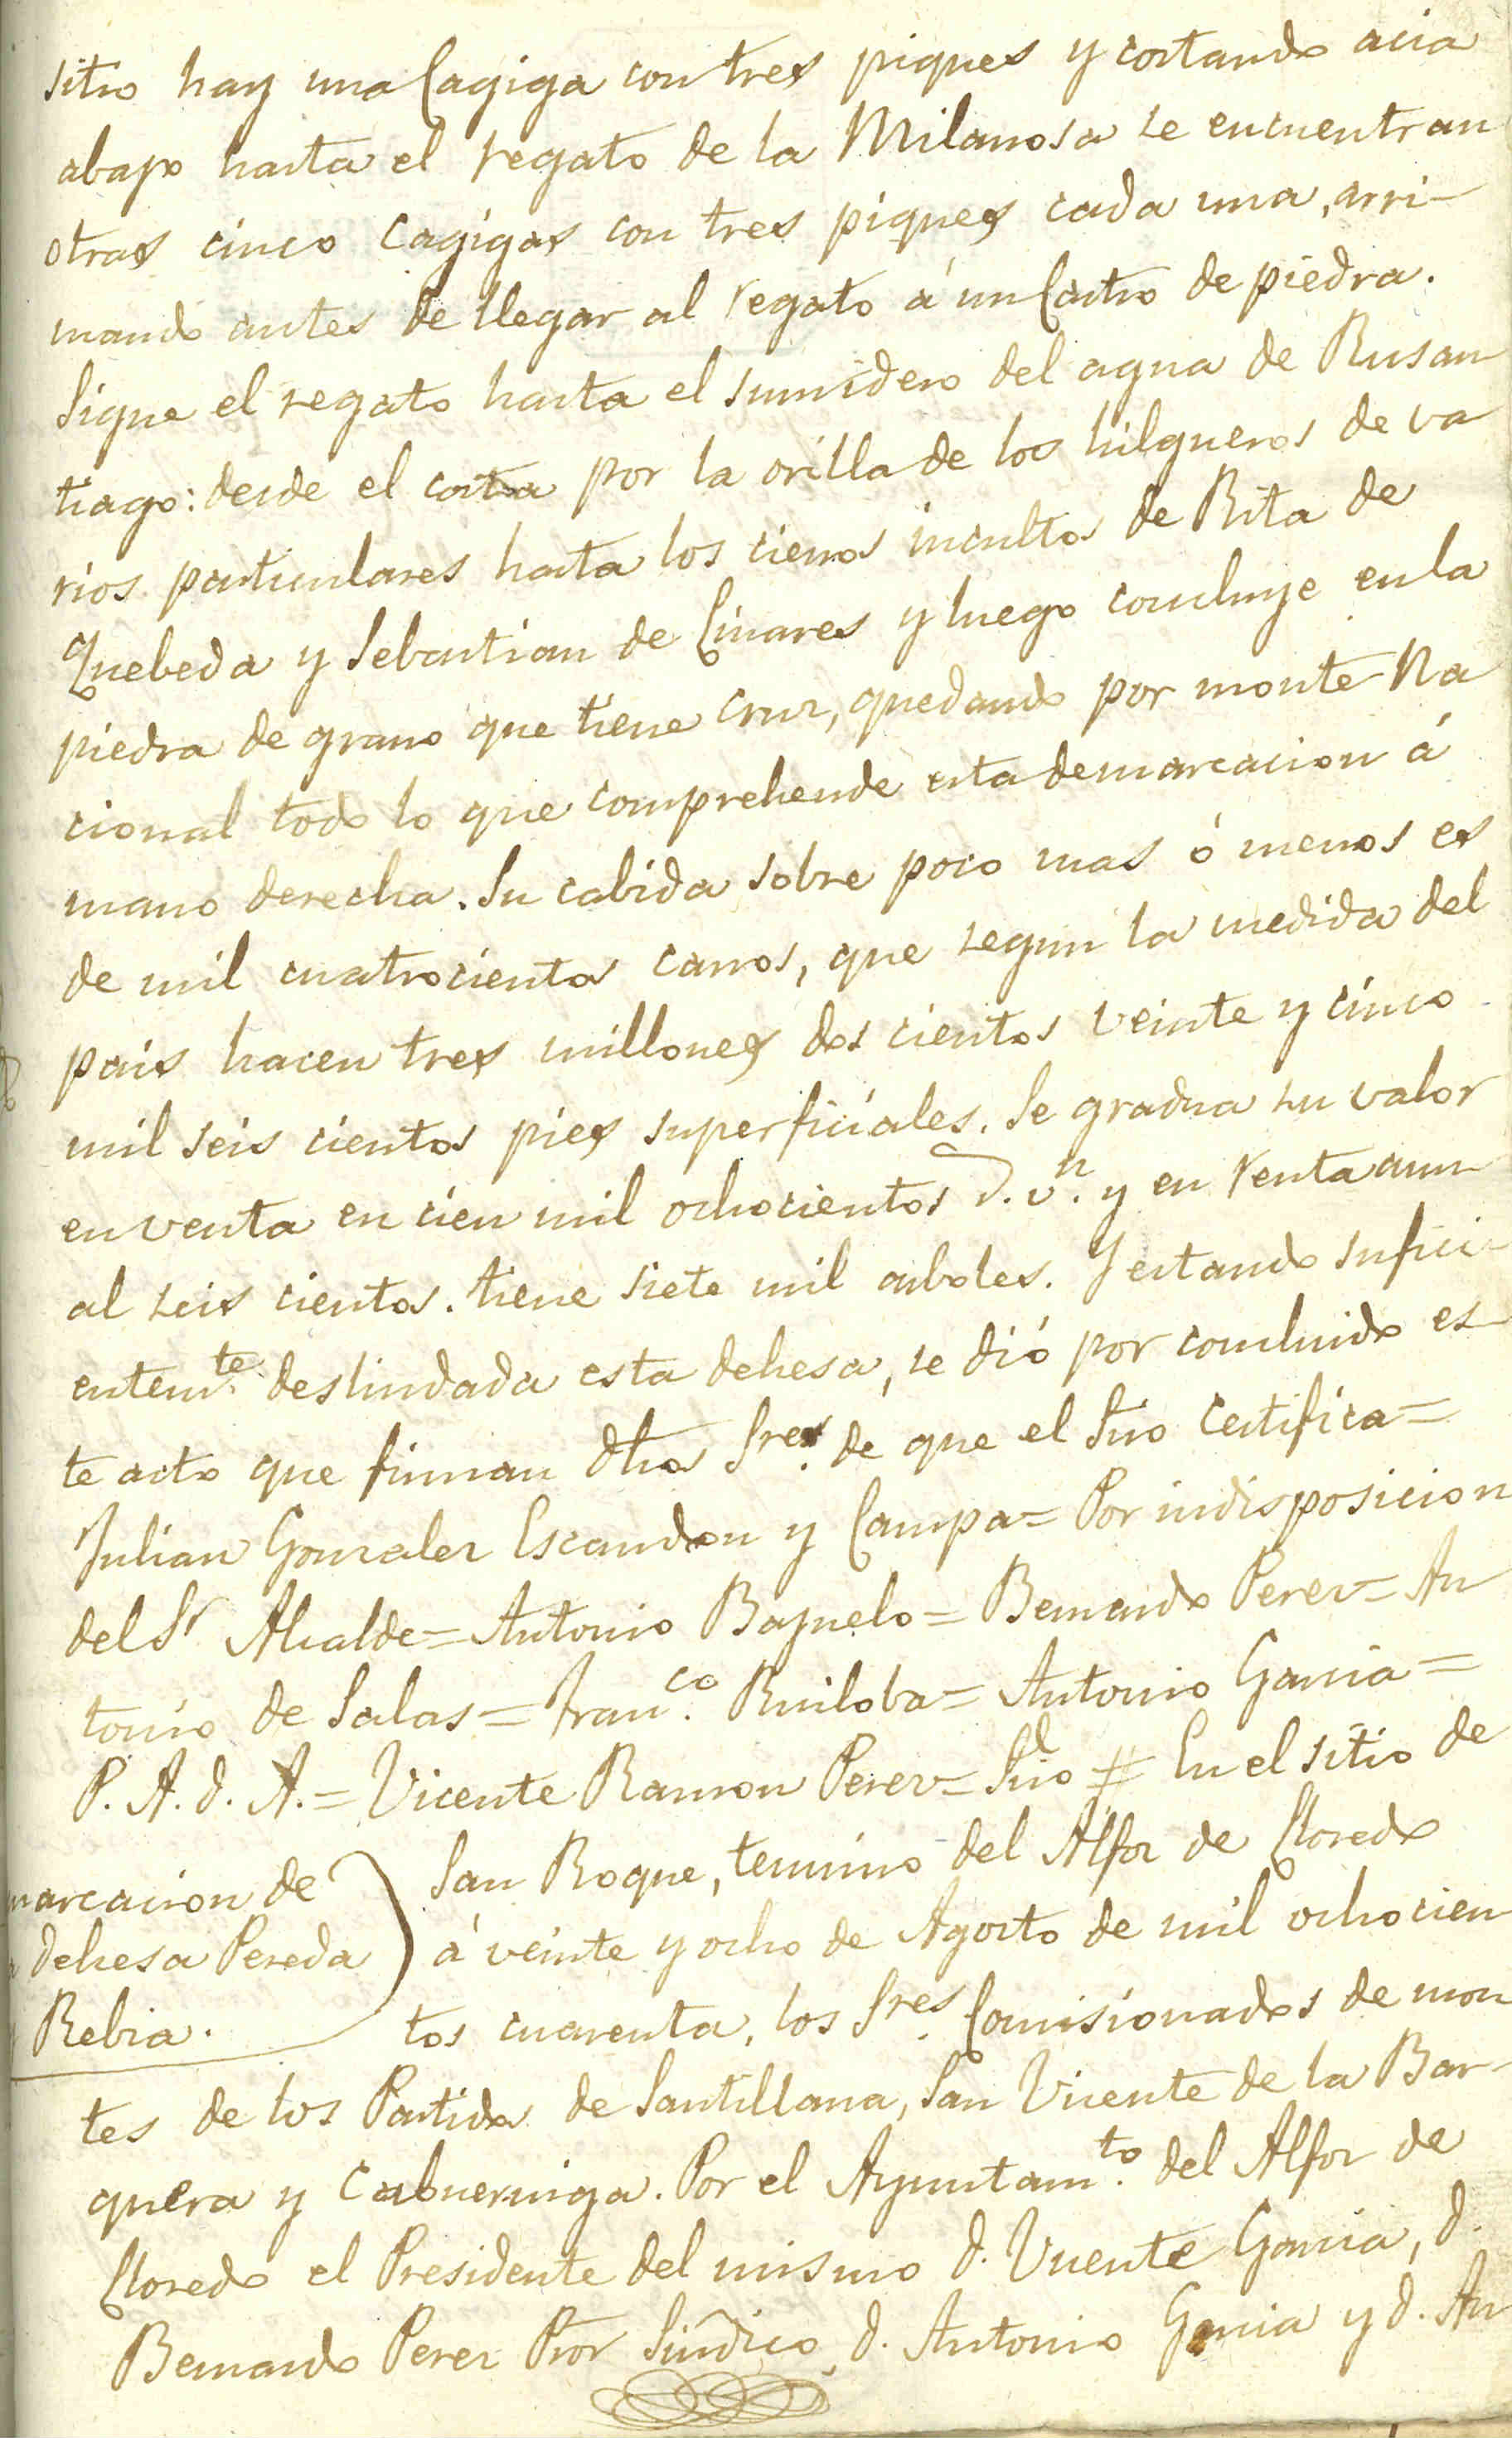 sitio hay una Cagiga con tres piques y cortando acia
abajo hasta el regato de la Milanosa se encuentran
otras cinco cagigas con tres piques cada una, arri-
mando antes de llegar al regato á un Castro de piedra.
Sigue el regato hasta el sumidero del agua de Rusan
tiago: desde el corta por la orilla de los hilgueros de va
rios particulares hasta los cierros incultos de Rita de
Quebeda y Sebastian de Linares y luego concluye en la
piedra de grano que tiene cruz, quedando por monte Na
cional todo lo que comprehende esta demarcacion á
mano derecha. Su cabida sobre poco mas ó menos es
de mil cuatrocientos carros, que segun la medida del
pais hacen tres millones dos cientos veinte y cinco
mil seis cientos pies superficiales. Se gradua su valor
en venta en cien mil ochocientos r. v.n y en renta anu
al seis cientos. tiene siete mil arboles. Y estando sufici-
entem.te deslindada esta dehesa, se dió por concluido es-
te acto que firman dhos Sres. de que el Srio certifica=
Julian Gonzalez Escandon y Campa= Por indisposicion
del Sr Alcalde= Antonio Bajuelo= Bernardo Perez= An
tonio de Salas= Fran.co Ruiloba= Antonio Garcia=
P. A. d. A.= Vicente Ramon Perez= Srio # En el sitio de
marcacion de
dehesa Pereda
Rebia.
San Roque, termino del Alfoz de Lloredo
á veinte y ocho de Agosto de mil ochocien
tos cuarenta, los Sres. Comisionados de mon
tes de los Partidos de Santillana, San Vicente de la Bar-
quera y Cabuerniga. Por el Ayuntam.to del Alfoz de
Lloredo el Presidente del mismo d. Vicente Garcia, d.
Bernardo Perez Pror Sindico, d. Antonio Garcia y d. An